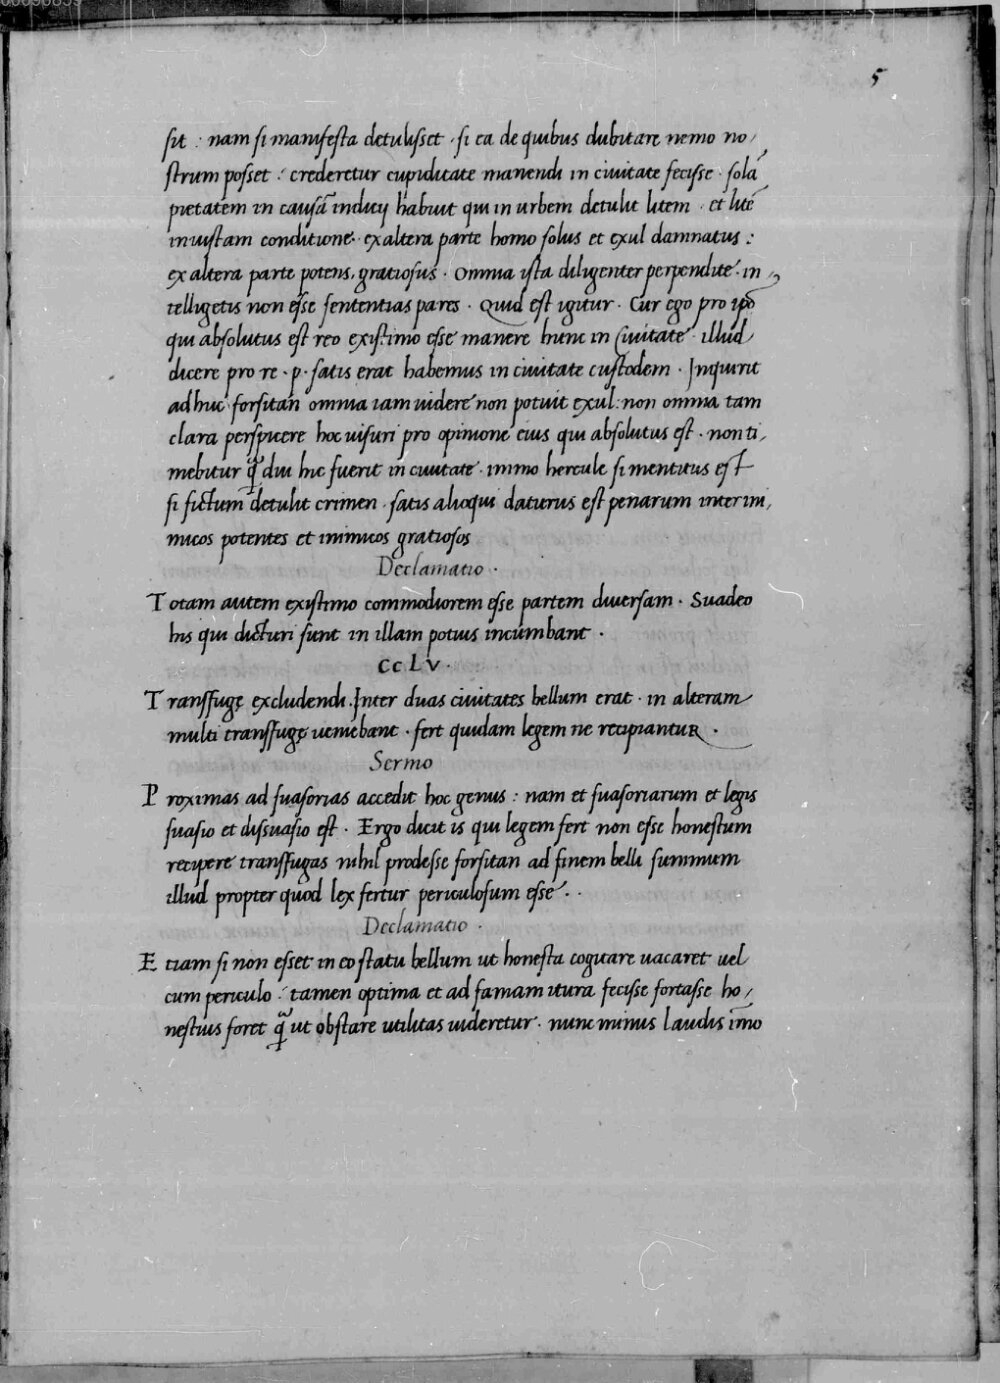 5
sit : nam si manifesta detulisset · si ea de quibus dubitare nemo no/
strum posset : crederetur cupiditate manendi in ciuitate fecisse · solā
pietatem in causā indicij habuit qui in urbem detulit litem · et litē
iniustam conditione · ex altera parte homo solus et exul damnatus :
ex altera parte potens, gratiosus · Omnia ista diligenter perpendite · in/
telligetis non esse sententias pares · Quid est igitur · Cur ego pro ip̄o
qui absolutus est reo existimo esse manere hunc in ciuitate · illud
dicere pro re · p · satis erat habemus in ciuitate custodem · Inquirit
adhuc forsitan omnia iam uidere non potuit exul : non omnia tam
clara perspicere hoc uisuri pro opinione eius qui absolutus est · non ti/
mebitur q̄ diu hic fuerit in ciuitate · immo hercule si mentitus est
si fictum detulit crimen · satis alioqui daturus est penarum inter ini/
micos potentes et inimicos gratiosos
Declamatio ·
Totam autem existimo commodiorem esse partem diuersam · Suadeo
his qui dicturi sunt in illam potius incumbant ·
CCLV ·
Transfugę excludendi · Inter duas ciuitates bellum erat · in alteram
multi transfugę ueniebant · fert quidam legem ne recipiantur ·
Sermo
Proximas ad suasorias accedit hoc genus : nam et suasoriarum et legis
suasio et dissuasio est · Ergo dicit is qui legem fert non esse honestum
recipere transfugas nihil prodesse forsitan ad finem belli summum
illud propter quod lex fertur periculosum esse ·
Declamatio ·
Etiam si non esset in eo statu bellum ut honesta cogitare uacaret uel
cum periculo : tamen optima et ad famam itura fecisse fortasse ho/
nestius foret q̄ ut obstare utilitas uideretur · nunc minus laudis im̄o